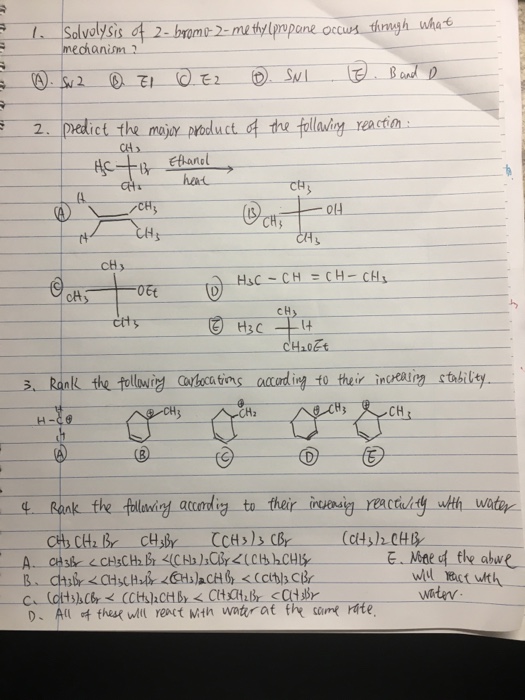 1. Solvolysis of 2-bromo-2-methylpropane occurs through what
mechanism?
(A). SN2 (B). E1 (C) E2 (D). SN1 (E). B and D
2. predict the major product of the following reaction:
CH3
H3C Br Ethanol
CH3 heat
(A) H CH3
H CH3
(B) CH3
CH3 OH
CH3
(C) CH3
CH3 OEt
CH3
(D) H3C - CH = CH - CH3
(E) CH3
H3C H
CH2OEt
3. Rank the following carbocations according to their increasing stability.
H
H-C⊕ ⊕ CH3 ⊕CH2 ⊕ CH3 ⊕ CH3
H
(A) (B) (C) (D) (E)
4. Rank the following according to their increasing reactivity with water
CH3CH2Br CH3Br (CH3)3CBr (CH3)2CHBr
A. CH3Br < CH3CH2Br < (CH3)3CBr < (CH3)2CHBr E. None of the above
B. CH3Br < CH3CH2Br < (CH3)2CHBr < (CH3)3CBr will react with
C. (CH3)3CBr < (CH3)2CHBr < CH3CH2Br < CH3Br water.
D. All of these will react with water at the same rate.